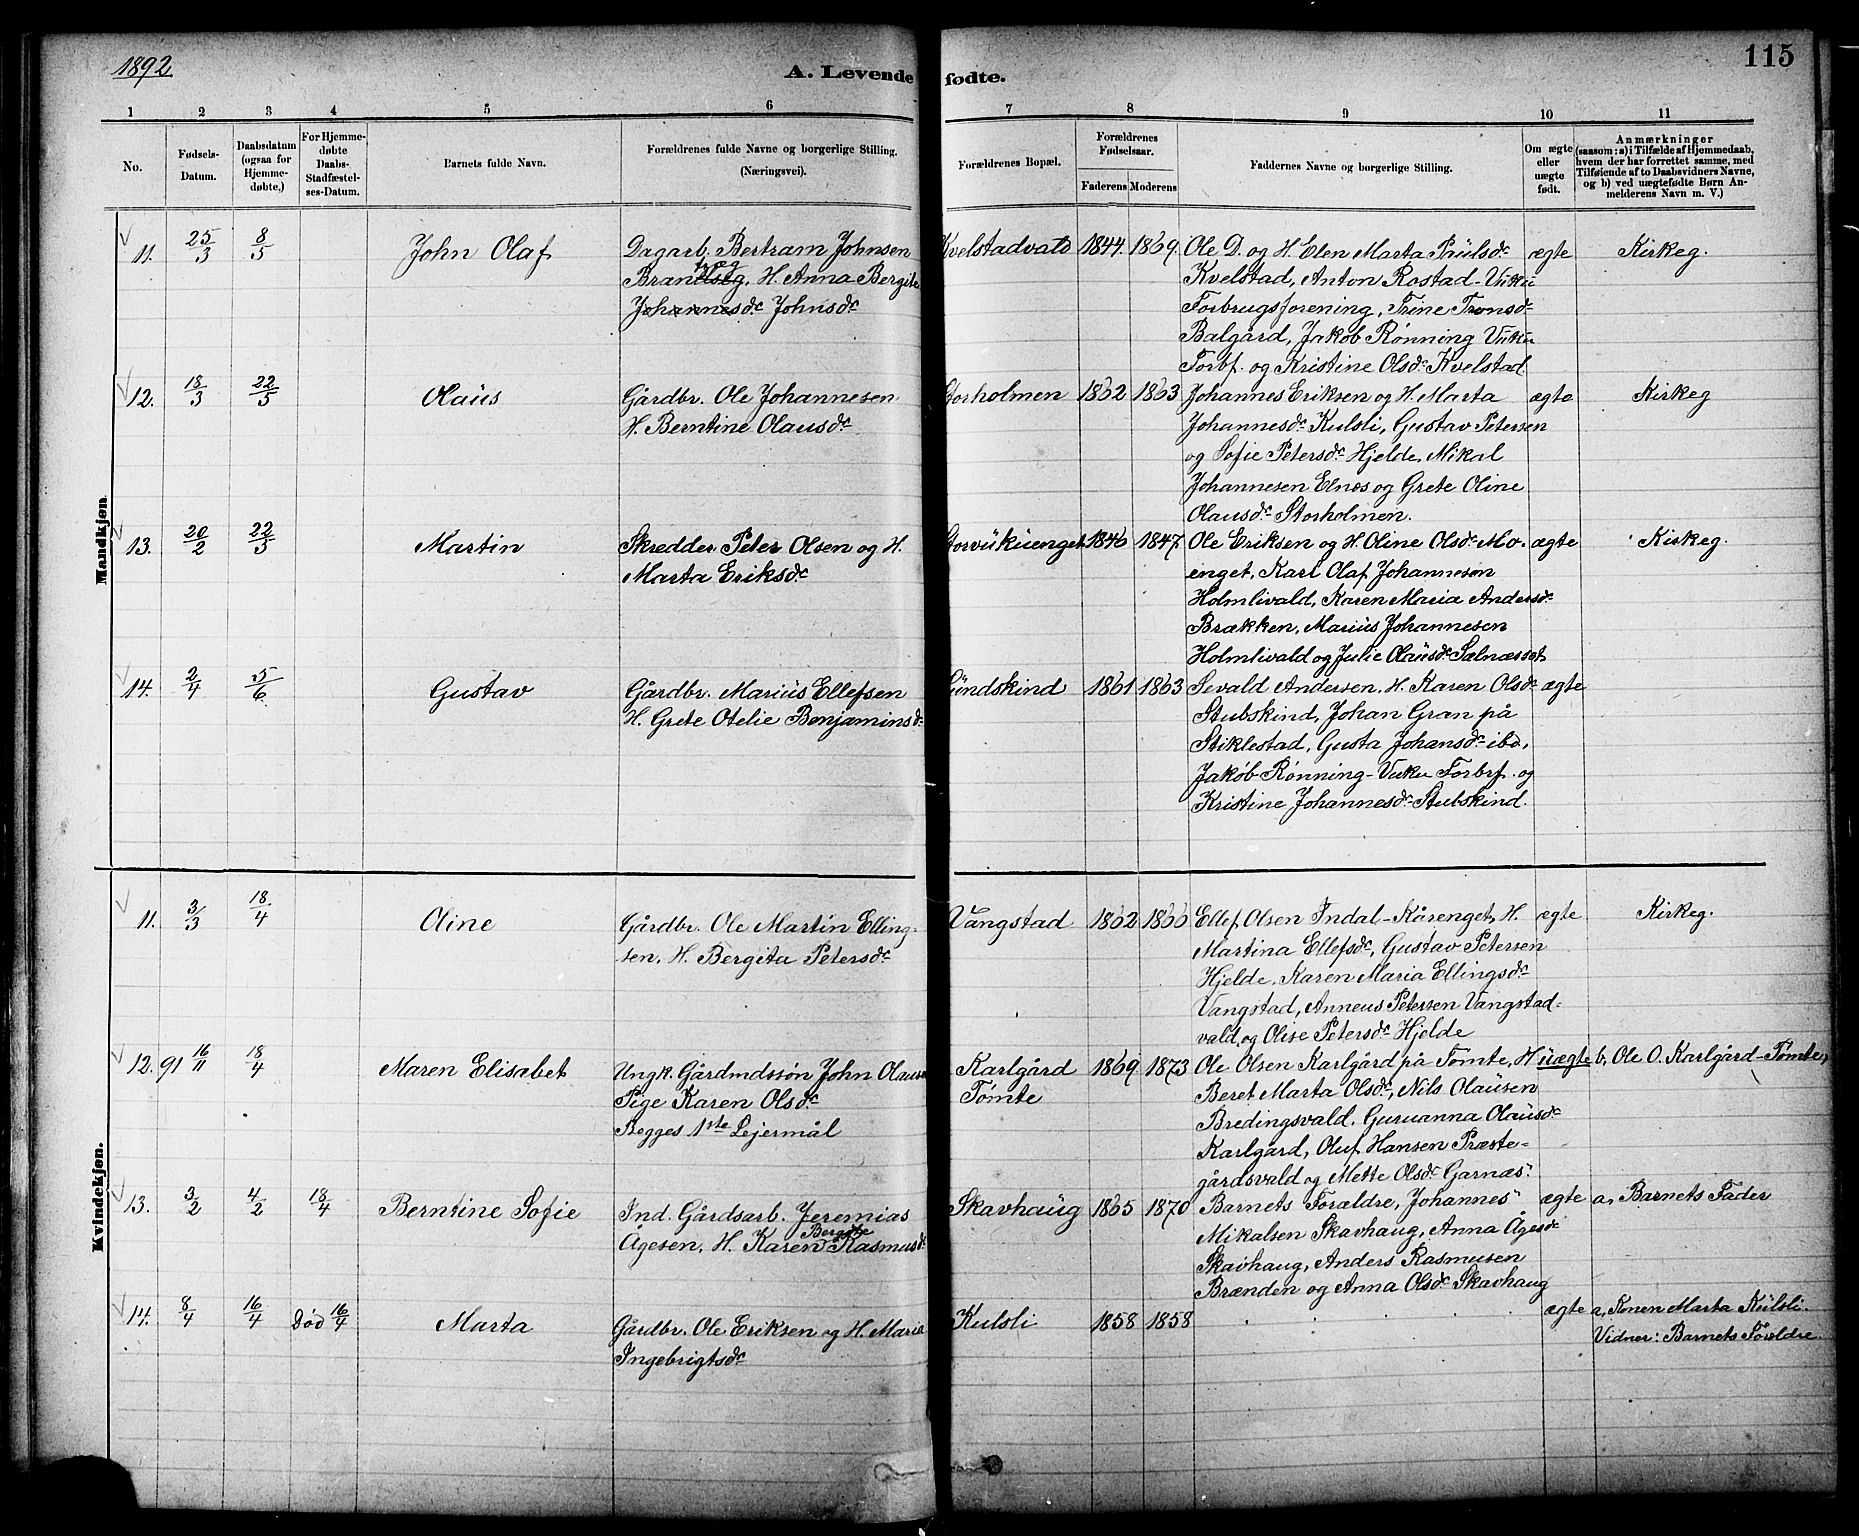 1892
A. Levende fødte.
115
1 2 3 4 5 6 7 8 9 10 11
No.
Fødsels-Datum.
Daabsdatum (ogsaa for Hjemmedøbte,)
For Hjemmedøbte Daabs-Stadfæstelses-Datum.
Barnets fulde Navn.
Forældrenes fulde Navne og borgerlige Stilling.
(Næringsvei).
Forældrenes Bopæl.
Forældrenes Fødselsaar.
Faderens Moderens
Faddernes Navne og borgerlige Stilling.
Om ægte eller uægte født.
Anmærkninger
(saasom: a) i Tilfælde af Hjemmedaab, hvem der har forrettet samme, med Tilføiende af to Daabsvidners Navne, og b) ved uægtefødte Børn Anmelderens Navn m. V.)
Mandkjøn
11. 25/3 8/5 John Olaf
Dagarb. Bertram Johnsen
H. Anna Bergite
Johannesdr Johnsdr
Kvelstadvald 1844 1869.
Ole D. og H. Elen Marta
Kvelstad, Anton Rostad-Vuku
Forbrugsforening, Trine
Balgård, Jakob Rønning Vuku
Forbf. og Kristine Olsdr Kvelstad
ægte Kirkeg.
12. 18/3 22/5 Olaüs
Gårdbr. Ole Johannesen
H. Berntine Olausdr
Storholmen 1862 1863
Johannes Eriksen og H. Marta
Johannesdr Kulsli, Gustav Petersen
og Sofie Petersdr Hjelde, Mikal
Johannesen Elnæs og Grete Oline
Olausdr Storholmen.
ægte Kirkeg
13. 20/2 22/5 Martin
Skredder Peter Olsen og H.
Marta Eriksdr
Storvukuenget 1846 1847
Ole Eriksen og H. Oline Olsdr Mo-
enget, Karl Olaf Johannesen
Holmlivald, Karen Maria Andersdr
Brækken, Marius Johannesen
Holmlivald og Julie Olausdr Salnæsset
ægte Kirkeg.
14. 2/4 5/6 Gustav
Gårdbr. Marius Ellefsen
H. Grete Otelie Benjaminsdr
Sundskind 1861 1863
Sevald Andersen, H. Karen Olsdr
Stubskind, Johan Gran på
Stiklestad, Gusta Johansdr ibd,
Jakob Rønning-Vuku Forbrf. og
Kristine Johannesdr Stubskind.
ægte
Kvindekjøn.
11. 3/3 18/4 Oline
Gårdbr. Ole Martin Elling-
sen, H. Bergita Petersdr
Vangstad 1862 1866
Ellef Olsen Indal-Kårenget, H.
Martina Ellefsdr, Gustav Petersen
Hjelde, Karen Maria Ellingsdr
Vangstad, Anneus Petersen Vangstad-
vald og Olise Petersdr Hjelde
ægte Kirkeg.
12. 91 16/11 18/4 Maren Elisabet
Ungk. Gårdmdssøn John Olausen
Pige Karen Olsdr
Begges 1ste Lejermål
Karlgård
Tømte
1869 1873
Ole Olsen Karlgård på Tømte, H
Beret Marta Olsdr, Nils Olausen
Bredingsvald, Guruanna Olausdr
Karlgård, Oluf Hansen Præste-
gårdsvald og Mette Olsdr Garnæs.
uægte b, Ole O. Karlgård-Tømte,
13. 3/2 4/2 18/4 Berntine Sofie
Ind. Gårdsarb. Jeremias
Ågesen, H. Karen Bergitte Rasmusdr
Skavhaug 1865 1870
Barnets Forældre, Johannes
Mikalsen Skavhaug, Anna Ågesdr
Skavhaug, Anders Rasmusen
Brænden og Anna Olsdr Skavhaug
ægte a, Barnets Fader
14. 8/4 16/4 død 16/4 Marta
Gårdbr. Ole Eriksen og H. Maria
Ingebrigtsdr
Kulsli 1858 1858
ægte a, Konen Marta Kulsli.
Vidner: Barnets Forældre